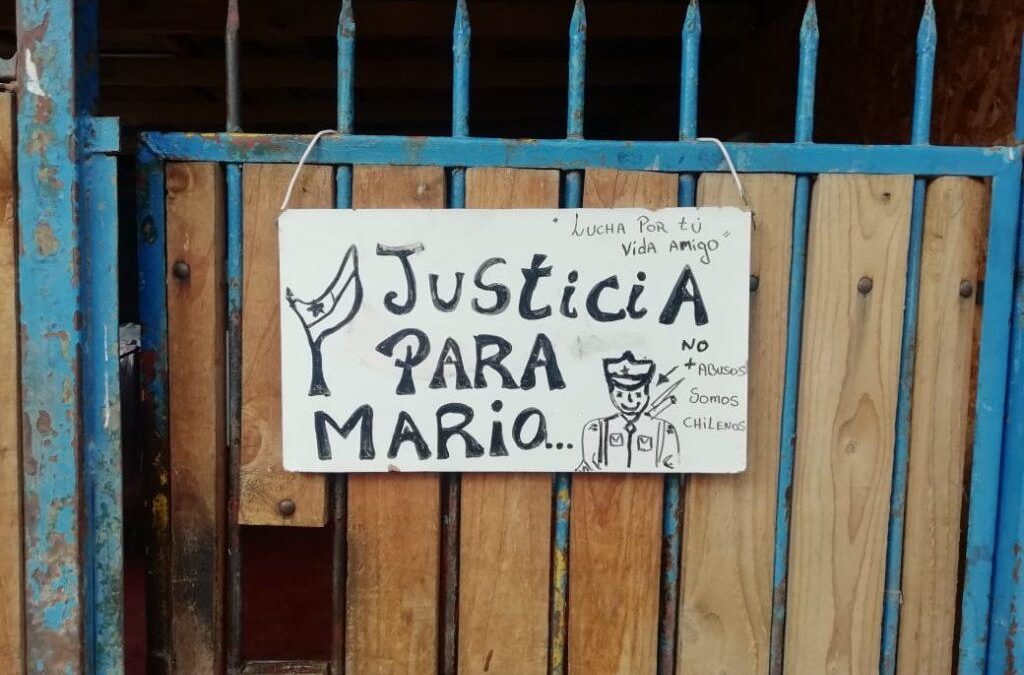 "LUCHA POR TÚ
VIDA AMIGO"
JUSTICIA
PARA
MARIO...
NO
+ ABUSOS
SOMOS
CHILENOS